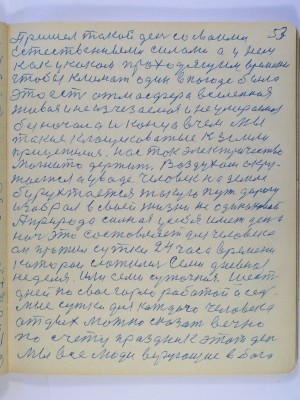 53
Пришел такой ден со своими
естественными силами а у нему
как у каков проходящим времени
чтобы климат один в погоде было
Это ест атмасфера вселенная
живая неизчезаемая и неумираемая
без начала и конца в чем мы
такие к земли
притяжения. Нас ток электричество
магнито держит. Воздухом окру-
жается а у воде человек на земле
такую пут дорогу
избрал в своей жизни не одинаковой
А природа сама у себя имеет ден и
нач это составляет для человека
он прожил сутки 24 часа времени
которая сложилас Семи дневная
неделя. Или семи суточная. Шест
дней по свое горло работай а сед-
мые сутки для каждого человека
отдых можно сказат вечно
по счету праздник этот ден
Мы все люди верующие в бога